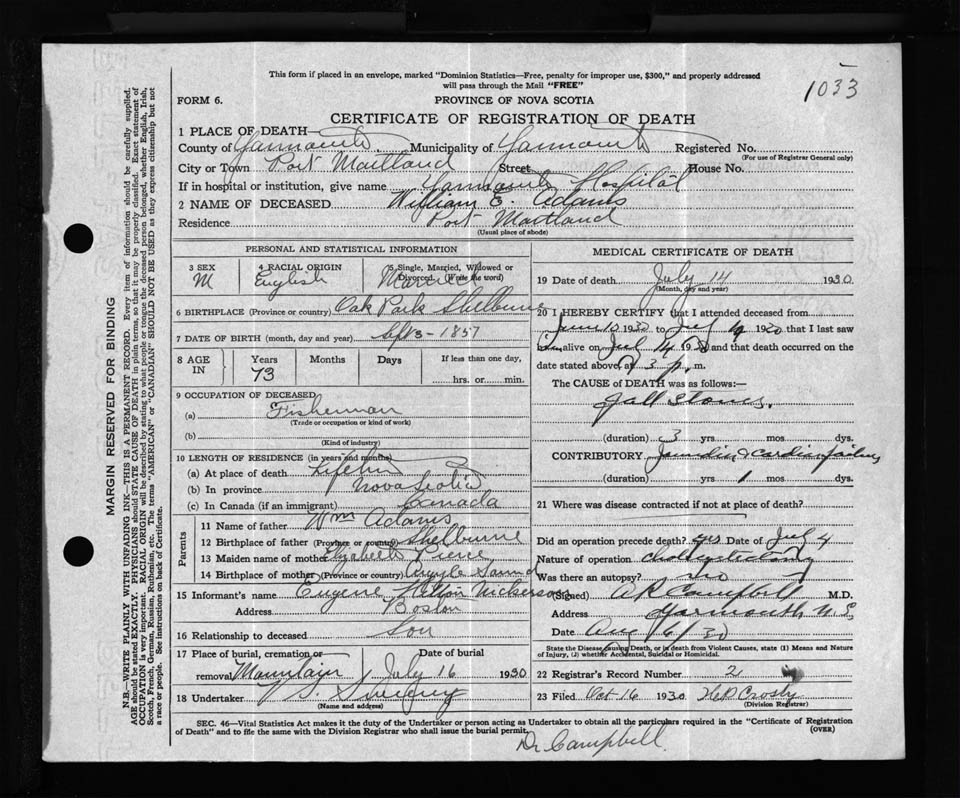 This form if placed in an envelope, marked "Dominion Statistics—Free, penalty for improper use, $300," and properly addressed
will pass through the Mail "FREE"
1033
FORM 6.
PROVINCE OF NOVA SCOTIA
CERTIFICATE OF REGISTRATION OF DEATH
1 PLACE OF DEATH—
County of Yarmouth. Municipality of Yarmouth Registered No.
(For use of Registrar General only)
City or Town Port Maitland Street House No.
If in hospital or institution, give name Yarmouth Hospital
2 NAME OF DECEASED William E. Adams
Residence Port Maitland
(Usual place of abode)
PERSONAL AND STATISTICAL INFORMATION
3 SEX M
4 RACIAL ORIGIN English
5 Single, Married, Widowed or Divorced. (Write the word) Married
6 BIRTHPLACE (Province or country) Oak Park Shelburne
7 DATE OF BIRTH (month, day and year) Sept 3 - 1857
8 AGE IN Years 73 Months Days If less than one day, hrs. or min.
9 OCCUPATION OF DECEASED
(a) Fisherman
(Trade or occupation or kind of work)
(b)
(Kind of industry)
10 LENGTH OF RESIDENCE (in years and months)
(a) At place of death Lifetime
(b) In province Nova Scotia
(c) In Canada (if an immigrant) Canada
Parents
11 Name of father Wm Adams
12 Birthplace of father (Province or country) Shelburne
13 Maiden name of mother Elizabeth Pierce
14 Birthplace of mother (Province or country) Argyle Sound
15 Informant's name Eugene Hilton Nickerson
Address Boston
16 Relationship to deceased Son
17 Place of burial, cremation or removal Mountain
Date of burial July 16 1930
18 Undertaker V S. Sweeny
(Name and address)
MEDICAL CERTIFICATE OF DEATH
19 Date of death July 14 1930
(Month, day and year)
20 I HEREBY CERTIFY that I attended deceased from
June 10 1930 to July 14 1930 that I last saw
him alive on July 14 1930 and that death occurred on the
date stated above, at 3 p. m.
The CAUSE of DEATH was as follows:—
Gall Stones.
(duration) 3 yrs mos dys.
CONTRIBUTORY Jaundice & Cardiac failure
(duration) yrs 1 mos dys.
21 Where was disease contracted if not at place of death?
Did an operation precede death? yes Date of July 4
Nature of operation Cholecystectomy
Was there an autopsy? no
(Signed) A R Campbell M.D.
Address Yarmouth N.S.
Date Aug 16/30
State the Disease Causing Death, or in death from Violent Causes, state (1) Means and Nature
of Injury, (2) whether Accidental, Suicidal or Homicidal.
22 Registrar's Record Number 2
23 Filed Oct 16 1930 H P Crosby
(Division Registrar)
SEC. 46—Vital Statistics Act makes it the duty of the Undertaker or person acting as Undertaker to obtain all the particulars required in the "Certificate of Registration
of Death" and to file the same with the Division Registrar who shall issue the burial permit.
(OVER)
Dr Campbell.
MARGIN RESERVED FOR BINDING
N.B.—WRITE PLAINLY WITH UNFADING INK—THIS IS A PERMANENT RECORD. Every item of information should be carefully supplied.
AGE should be stated EXACTLY. PHYSICIANS should STATE CAUSE OF DEATH in plain terms, so that it may be properly classified. Exact statement of
OCCUPATION is very important. RACIAL ORIGIN will be described by stating to what people or tongue the deceased person belonged, whether English, Irish,
Scotch, French, German, Russian, Ruthenian, etc. The terms "AMERICAN" or "CANADIAN" SHOULD NOT BE USED as they express citizenship but not
a race or people. See instructions on back of Certificate.